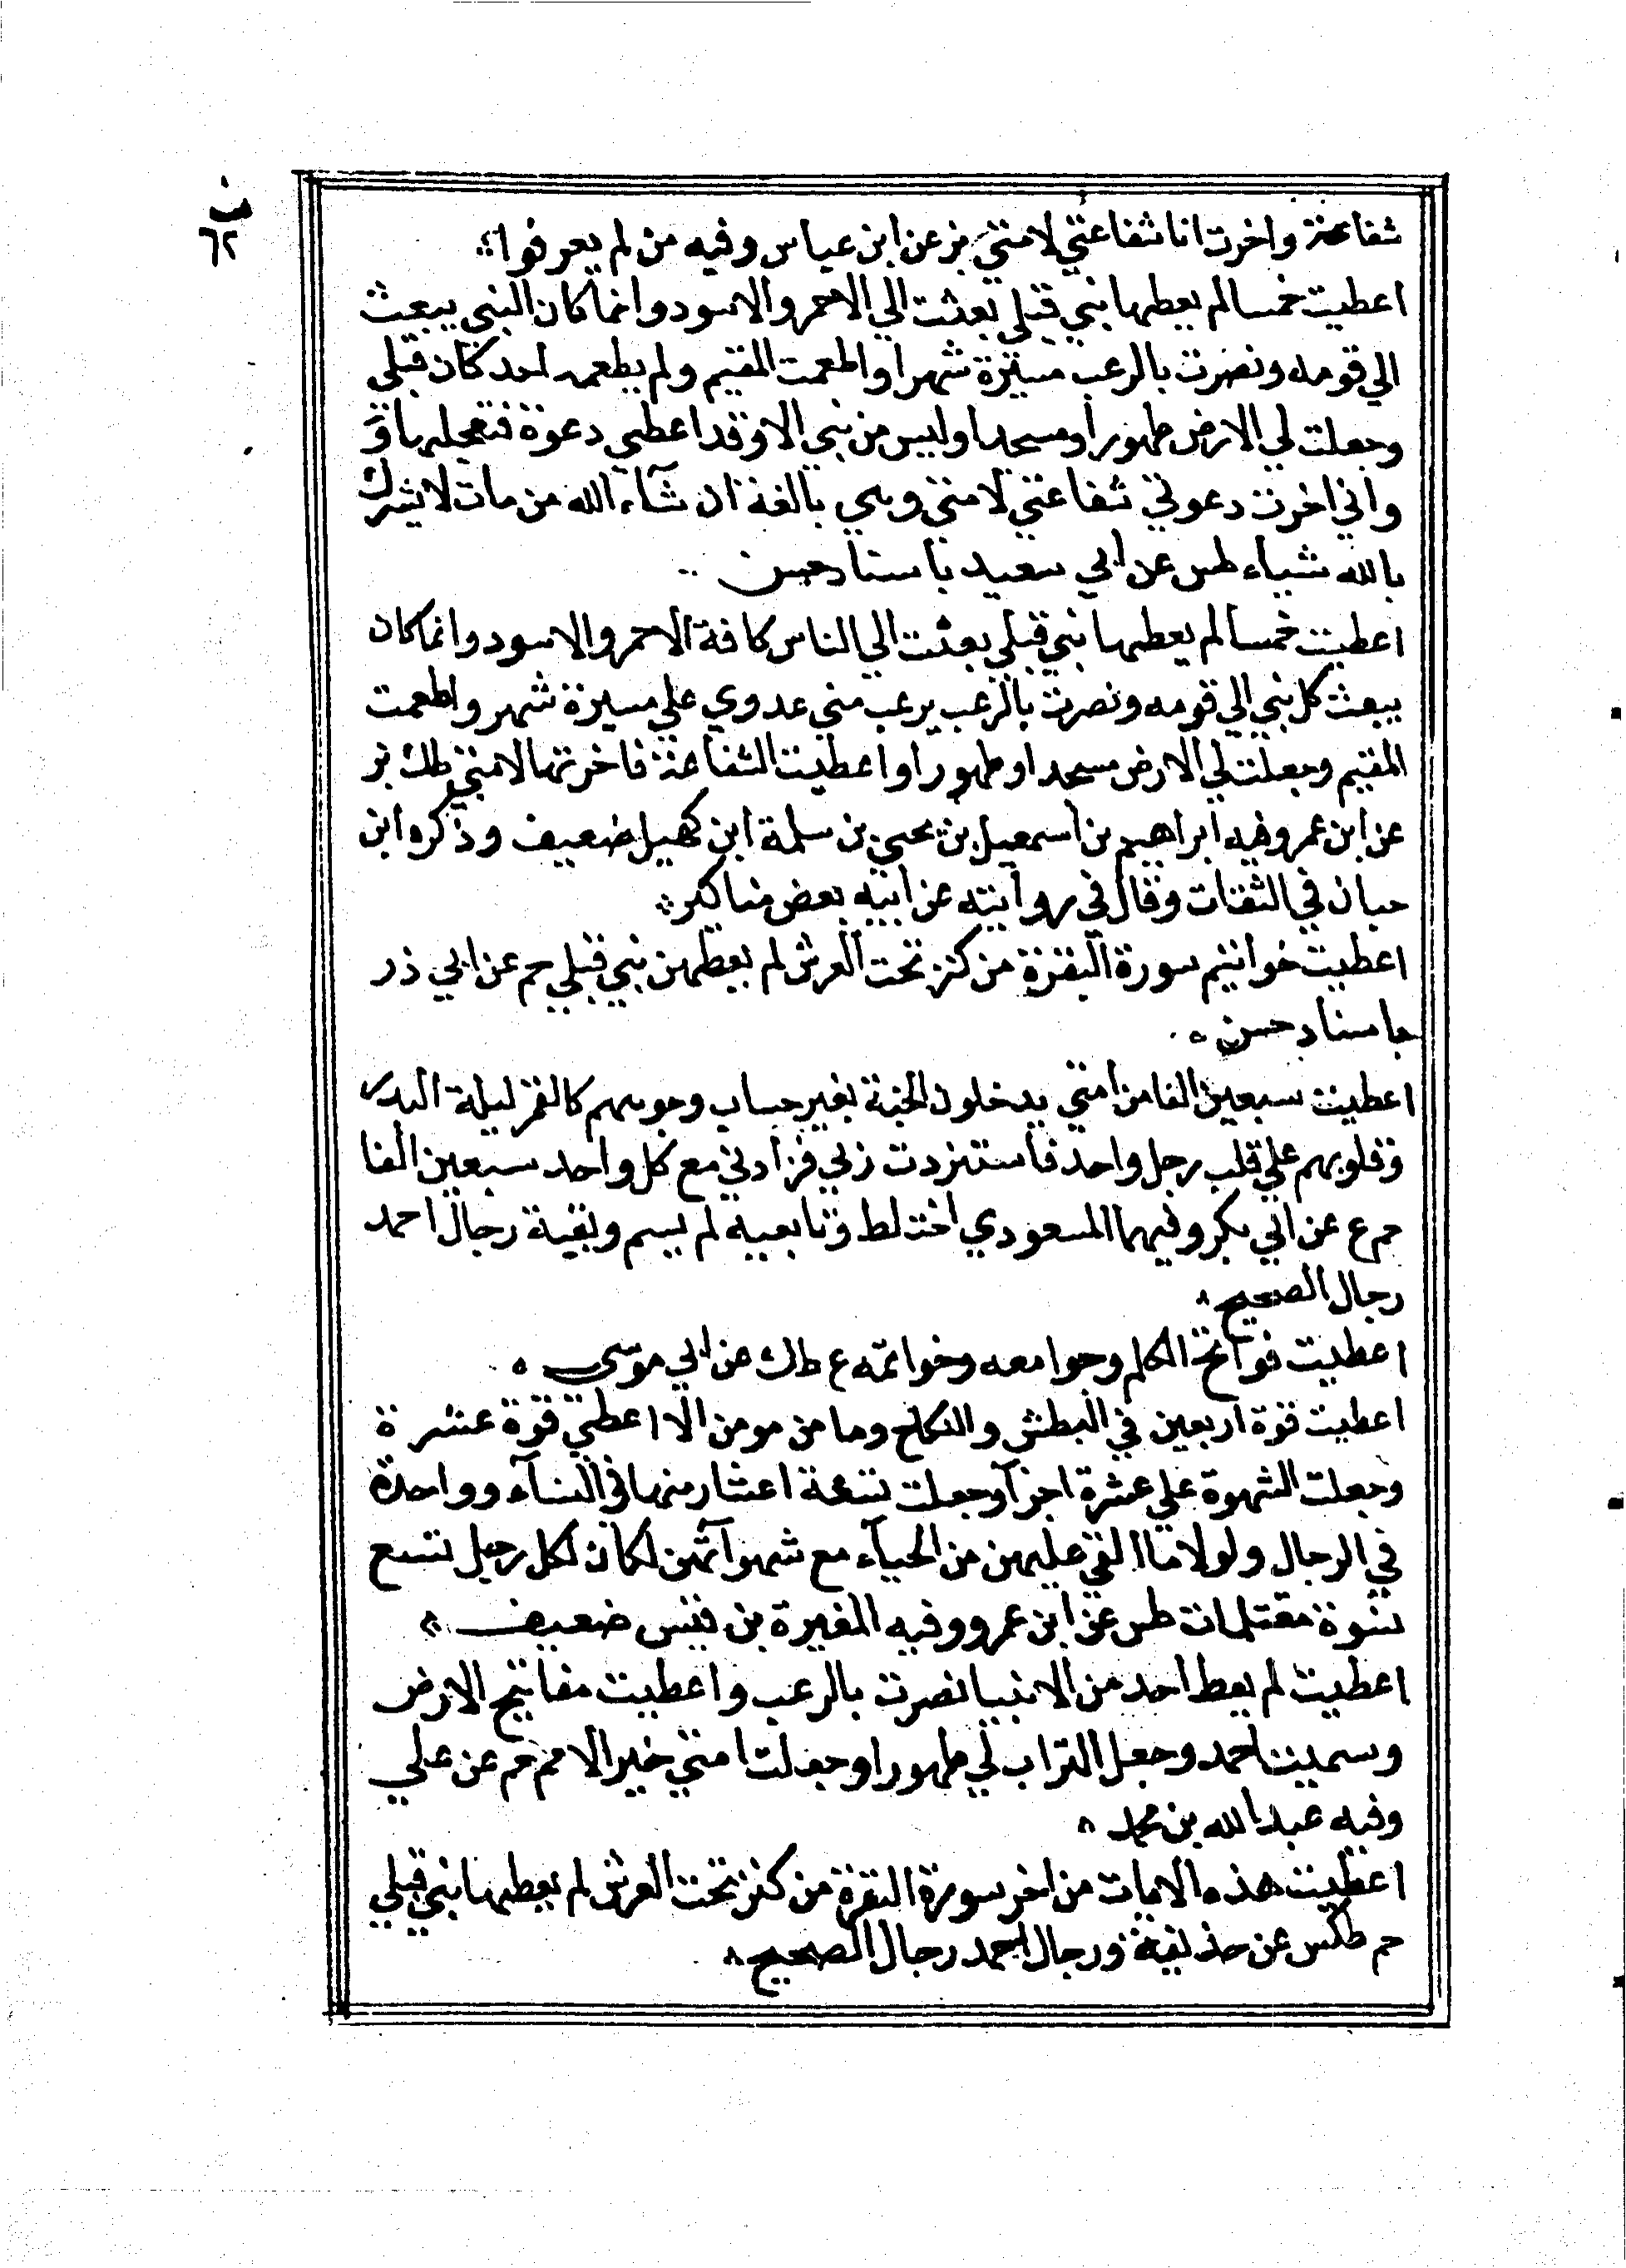 ب
٦٢
شفاعته واخرت انا شفاعتي لامتي بز عن ابن عباس وفيه من لم يعرفوا
اعطيت خمسا لم يعطها نبي قبلي بعثت الي الاحمر والاسود وانما كان النبي يبعث
الي قومه ونصرت بالرعب مسيرة شهر واطعمت المقيم ولم يطعمه احد كان قبلي
وجعلت لي الارض طهورا ومسجدا وليس من نبي الا وقد اعطي دعوة فتعجلها
واني اخرت دعوتي شفاعتي لامتي وهي بالغة ان شآء الله من مات لا يشرك
بالله شياء طس عن ابي سعيد باسناد حسن
اعطيت خمسا لم يعطها نبي قبلي بعثت الي الناس كافة الاحمر والاسود وانما كان
يبعث كل نبي الي قومه ونصرت بالرعب يرعب مني عدوي علي مسيرة شهر واطعمت
المقيم وجعلت لي الارض مسجدا وطهورا واعطيت الشفاعة فاخرتها لامتي طك بز
عن ابن عمر وفيه ابراهيم بن اسمعيل بن يحيي بن سلمة ابن كهيل ضعيف وذكره ابن
حبان في الثقات وقال في روايته عن ابيه بعض مناكير
اعطيت خواتيم سورة البقرة من كنز تحت العرش لم يعطهن نبي قبلي حم عن ابي ذر
باسناد حسن
اعطيت سبعين الفا من امتي يدخلون الجنة بغير حساب وجوههم كالقمر ليلة البدر
وقلوبهم علي قلب رجل واحد فاستزدت ربي فزادني مع كل واحد سبعين الفا
حم ع عن ابي بكر وفيهما المسعودي اختلط وتابعيه لم يسم وبقية رجال احمد
رجال الصحيح
اعطيت فواتح الكلم وجوامعه وخواتمه ع طك عن ابي موسي
اعطيت قوة اربعين في البطش والنكاح وما من مومن الا اعطي قوة عشرة
وجعلت الشهوة علي عشرة اجزآ وجعلت تسعة اعشار منها في النسآء وواحدة
في الرجال ولولا ما القي عليهن من الحيآء مع شهواتهن لكان لكل رجل تسع
نسوة مغتلمات طس عن ابن عمرو وفيه المغيرة بن قيس ضعيف
اعطيت لم يعط احد من الانبيا نصرت بالرعب واعطيت مفاتيح الارض
وسميت احمد وجعل التراب لي طهورا وجعلت امتي خير الامم حم عن علي
وفيه عبد الله بن محمد
اعطيت هذه الايات من اخر سورة البقرة من كنز تحت العرش لم يعطها نبي قبلي
حم طكس عن حذيفة ورجال احمد رجال الصحيح